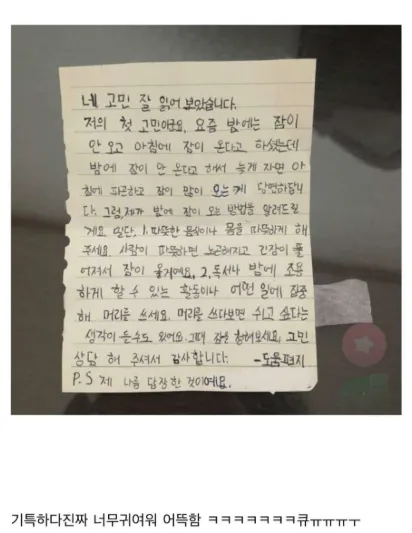 네 고민 잘 읽어 보았습니다.
저의 첫 고민이군요, 요즘 밤에는 잠이
안 오고 아침에 잠이 온다고 하셨는데
밤에 잠이 안 온다고 해서 늦게 자면 아
침에 피곤하고 잠이 많이 오는게 당연하답니
다. 그럼, 제가 밤에 잠이 오는 방법을 알려드릴
게요. 일단, 1. 따뜻한 음식이나 몸을 따뜻하게 해
주세요. 사람이 따뜻하면 노곤해지고 긴장이 풀
어져서 잠이 올거예요, 2, 독서나 밤에 조용
하게 할 수 있는 활동이나 어떤 일에 집중
해 머리를 쓰세요. 머리를 쓰다보면 쉬고 싶다는
생각이 들수도 있어요. 그때 잠을 청해보세요, 고민
상담 해 주셔서 감사합니다. -도움편지
P.S 제 나름 답장한 것이예요.
기특하다진짜 너무귀여워 어뜩함 ㅋㅋㅋㅋㅋㅋㅋ큐ㅠㅠㅠㅜ